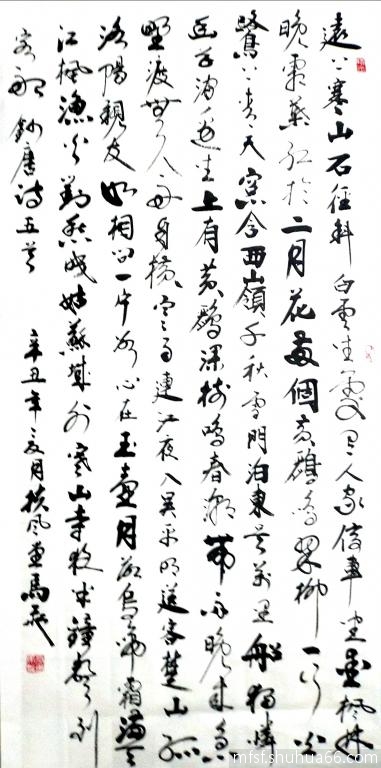 遠上寒山石徑斜白雲生處有人家停車坐愛楓林
晚霜葉紅於二月花兩個黃鸝鳴翠柳一行白
鷺上青天窗含西嶺千秋雪門泊東吳萬里船獨憐
幽草澗邊生上有黃鸝深樹鳴春潮帶雨晚來急
野渡無人舟自橫寒雨連江夜入吳平明送客楚山孤
洛陽親友如相問一片冰心在玉壺月落烏啼霜滿天
江楓漁火對愁眠姑蘇城外寒山寺夜半鐘聲到
客船 鈔唐詩五首 辛丑年夏月扶風堂馬
mfsf.shuhua66.com